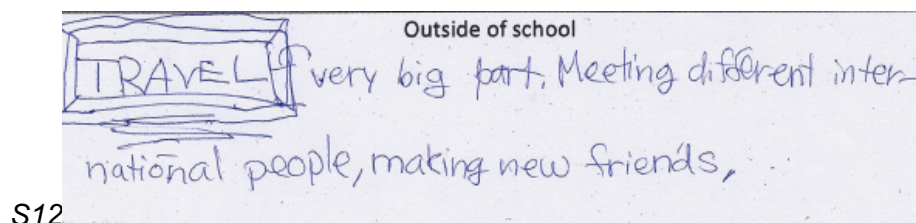 Outside of school
TRAVEL very big part. Meeting different inter-
national people, making new friends,
S12